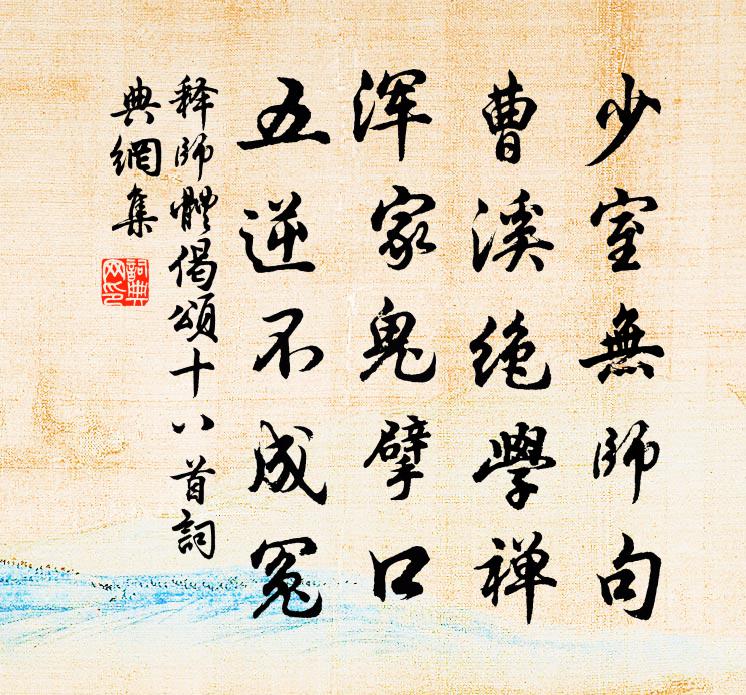 少室無師句
曹溪絶學禅
浑家鬼擘口
五逆不成冤
释師體偈頌十八首詞
典網集
詞典
网印